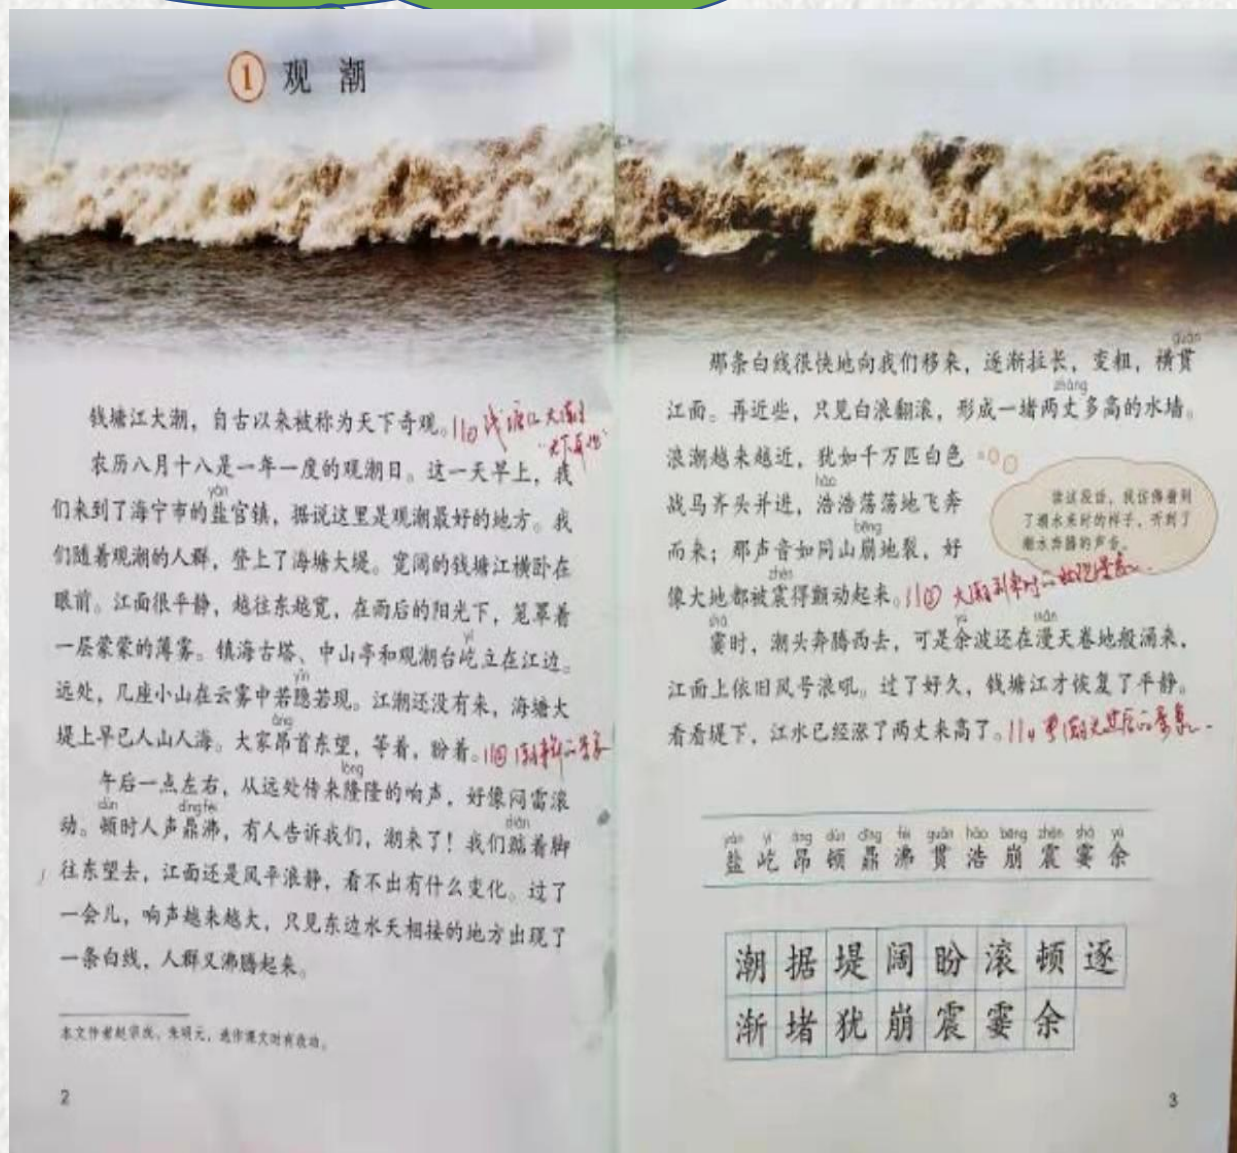 1 观潮
钱塘江大潮，自古以来被称为天下奇观。
农历八月十八是一年一度的观潮日。这一天早上，我
yán
们来到了海宁市的盐官镇，据说这里是观潮最好的地方。我
们随着观潮的人群，登上了海塘大堤。宽阔的钱塘江横卧在
眼前。江面很平静，越往东越宽，在雨后的阳光下，笼罩着
yì
一层蒙蒙的薄雾。镇海古塔、中山亭和观潮台屹立在江边。
yǐn
远处，几座小山在云雾中若隐若现。江潮还没有来，海塘大
áng
堤上早已人山人海。大家昂首东望，等着，盼着。
lóng
午后一点左右，从远处传来隆隆的响声，好像闷雷滚
dùn dǐng fèi diǎn
动。顿时人声鼎沸，有人告诉我们，潮来了！我们踮着脚
往东望去，江面还是风平浪静，看不出有什么变化。过了
一会儿，响声越来越大，只见东边水天相接的地方出现了
一条白线，人群又沸腾起来。
本文作者赵宗成、朱明元，选作课文时有改动。
2
guàn
那条白线很快地向我们移来，逐渐拉长，变粗，横贯
zhàng
江面。再近些，只见白浪翻滚，形成一堵两丈多高的水墙。
浪潮越来越近，犹如千万匹白色
hào
战马齐头并进，浩浩荡荡地飞奔
bēng
而来；那声音如同山崩地裂，好
zhèn
像大地都被震得颤动起来。
读这段话，我仿佛看到
了潮水来时的样子，听到了
潮水奔腾的声音。
shà yú màn
霎时，潮头奔腾西去，可是余波还在漫天卷地般涌来，
江面上依旧风号浪吼。过了好久，钱塘江才恢复了平静。
看看堤下，江水已经涨了两丈来高了。
yán yì áng dùn dǐng fèi guàn hào bēng zhèn shà yú
盐 屹 昂 顿 鼎 沸 贯 浩 崩 震 霎 余
潮 据 堤 阔 盼 滚 顿 逐
渐 堵 犹 崩 震 霎 余
3